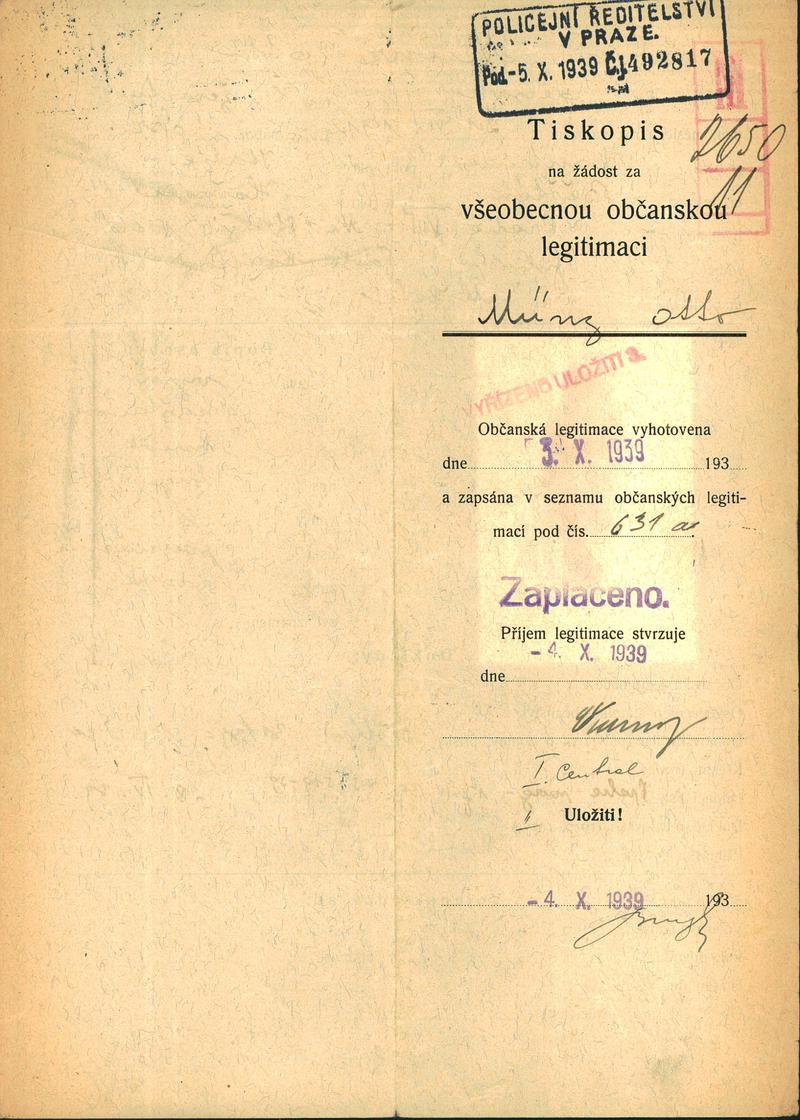 POLICEJNÍ ŘEDITELSTVÍ
V PRAZE.
Pod. -5. X. 1939 Čj. 492817
Tiskopis
2650
na žádost za
11
všeobecnou občanskou
legitimaci
Münz Otto
VYŘÍZENO ULOŽITI 3.
Občanská legitimace vyhotovena
dne 3. X. 1939 193
a zapsána v seznamu občanských legiti-
mací pod čís. 631 a
Zaplaceno.
Příjem legitimace stvrzuje
- 4. X. 1939
dne
I. Central
" Uložiti!
- 4. X. 1939 193